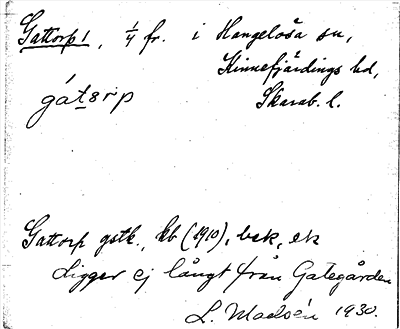 Gattorp 1, 1/4 fr. i Hangelösa sn,
Kinnefjärdings hd,
gátₒrp Skarab. l.
Gattorp gstk., kb (1910), bek, ek
Ligger ej långt från Gategården
L. Madsén 1930.